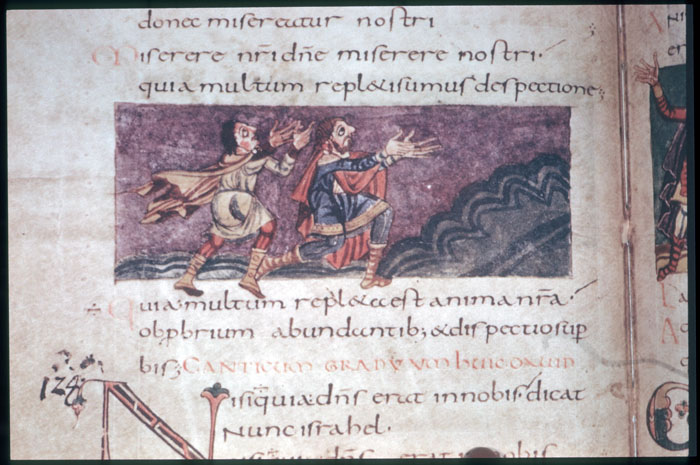 donec misereatur nostri
Miserere nr̄i dn̄e miserere nostri.
quia multum repl&isumus despectione;
Quia multum repl&a est anima nr̄a.
obprbrium abundantib; & dispectio sup
bis; CANTICUM GRADUUM
124
Nisi quia dn̄s erat in nobis. dicat
nunc israhel.
nisi quia dn̄s erit in nobis